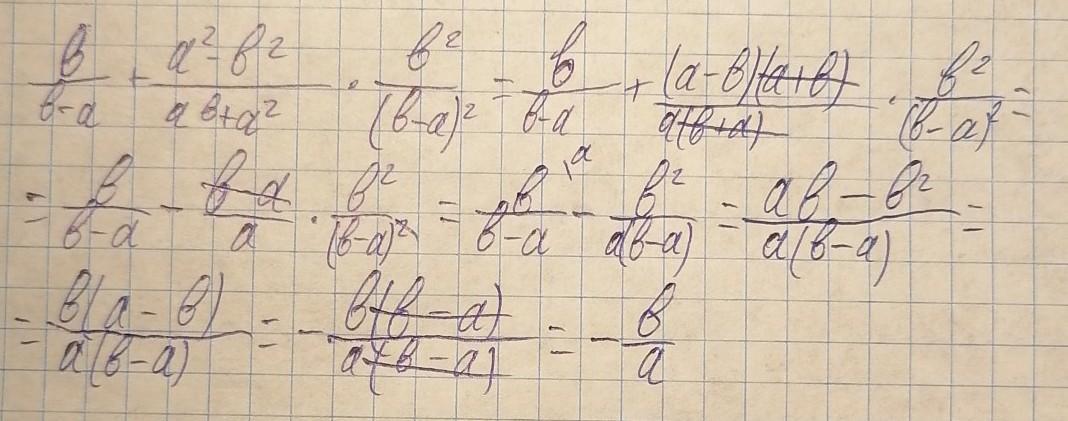 в/(в-a) + (a²-в²)/(aв+a²) · в²/(в-a)² = в/(в-a) + (a-в)(a+в)/a(в+a) · в²/(в-a)² =
= в/(в-a) - (в-a)/a · в²/(в-a)² = в/(в-a) \a - в²/a(в-a) = (aв-в²)/a(в-a) =
= в(a-в)/a(в-a) = - в(в-a)/a(в-a) = - в/a